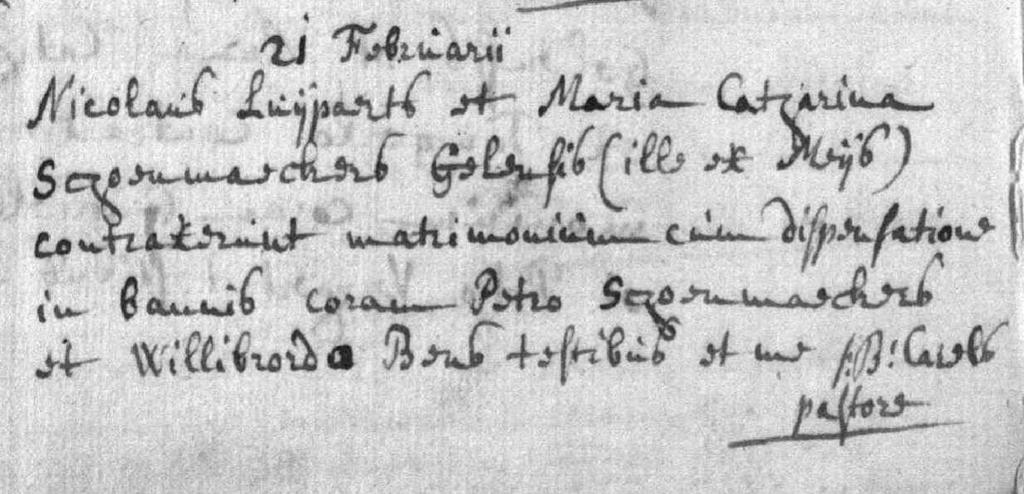 21 Februarii
Nicolaus Luÿpaerts et Maria Catharina
Schoenmaeckers Gelensis (ille ex Meÿs)
contraxerunt matrimonium cum dispensatione
in bannis coram Petro Schoenmaeckers
et Willibrordo Bens testibus et me J: B: Carels
pastore